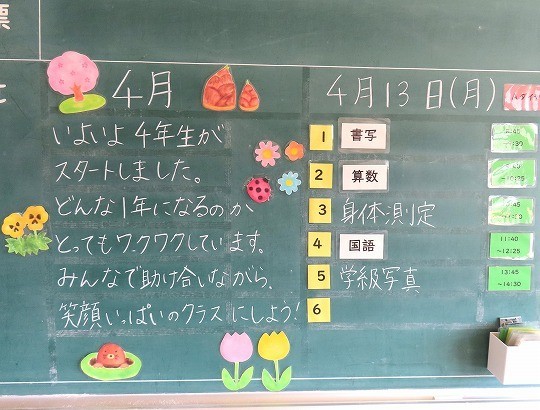 票
4月
いよいよ4年生が
スタートしました。
どんな1年になるのか
とってもワクワクしています。
みんなで助け合いながら、
笑顔いっぱいのクラスにしよう!
4月13日(月)
1 書写
2 算数
3 身体測定
4 国語 11:40~12:25
5 学級写真 13:45~14:30
6